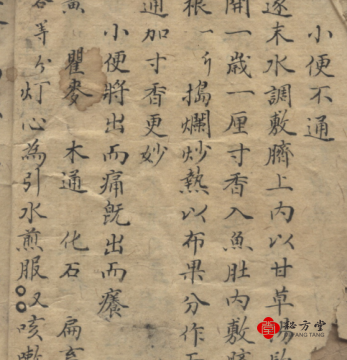 小便不通
遂末水調敷臍上內以甘草湯
開一歲一厘寸香入魚肚內敷臍
根一斤搗爛炒熱以布果分作
通加寸香更妙
小便將出而痛旣出而癢
瞿麥 木通 化石 扁
等分灯心為引水煎服又咳嗽
秘方堂
FANG TANG